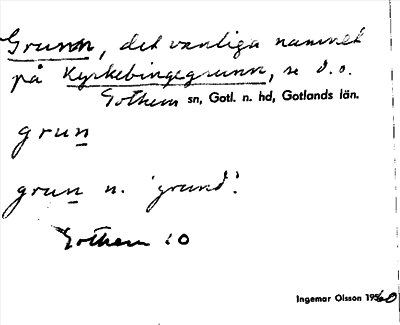 Grunn, det vanliga namnet
på Kyrkebingegrunn, se d.o.
Gothem sn, Gotl. n. hd, Gotlands län.
grun
grun n. 'grund'.
Gothem :0
Ingemar Olsson 1960